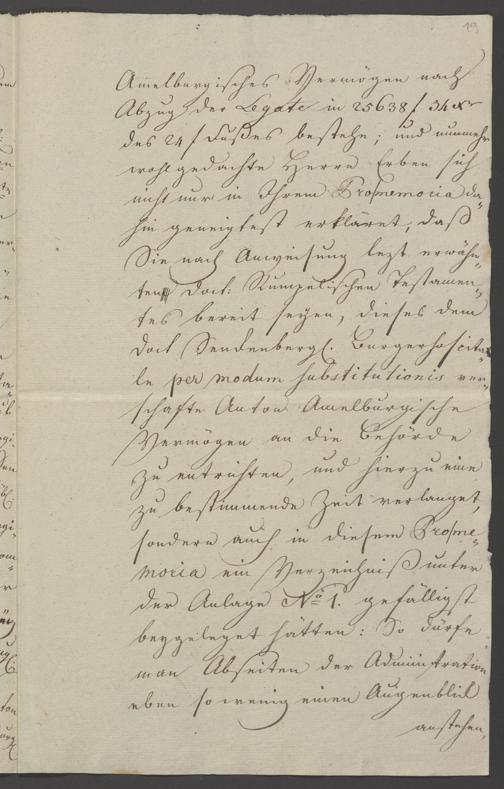 19
Amelburgisches Vermögen nach
Abzug der Legate in 25638 f 34 xr
des 24 f Fußes bestehe; und nunmehr
wohlgedachte Herrn Erben sich
nicht nur in Ihrem Promemoria da„
hin geneigtest erkläret, daß
Sie nach Anweisung lezt erwähn„
ten Doct: Rumpelischen Testamen„
tes bereit seyen, dieses dem
Doct Senckenbergl. Burgerhospita„
le per modum substitutionis ver„
schafte Anton Amelburgische
Vermögen an die Behörde
zu entrichten, und hierzu eine
zu bestimmende Zeit verlanget,
sondern auch in diesem Prome„
moria ein Verzeichniß unter
der Anlage No 1. gefälligst
beygeleget hätten: So dürfe
man Abseiten der Administration
eben so wenig einen Augenblik
anstehen,